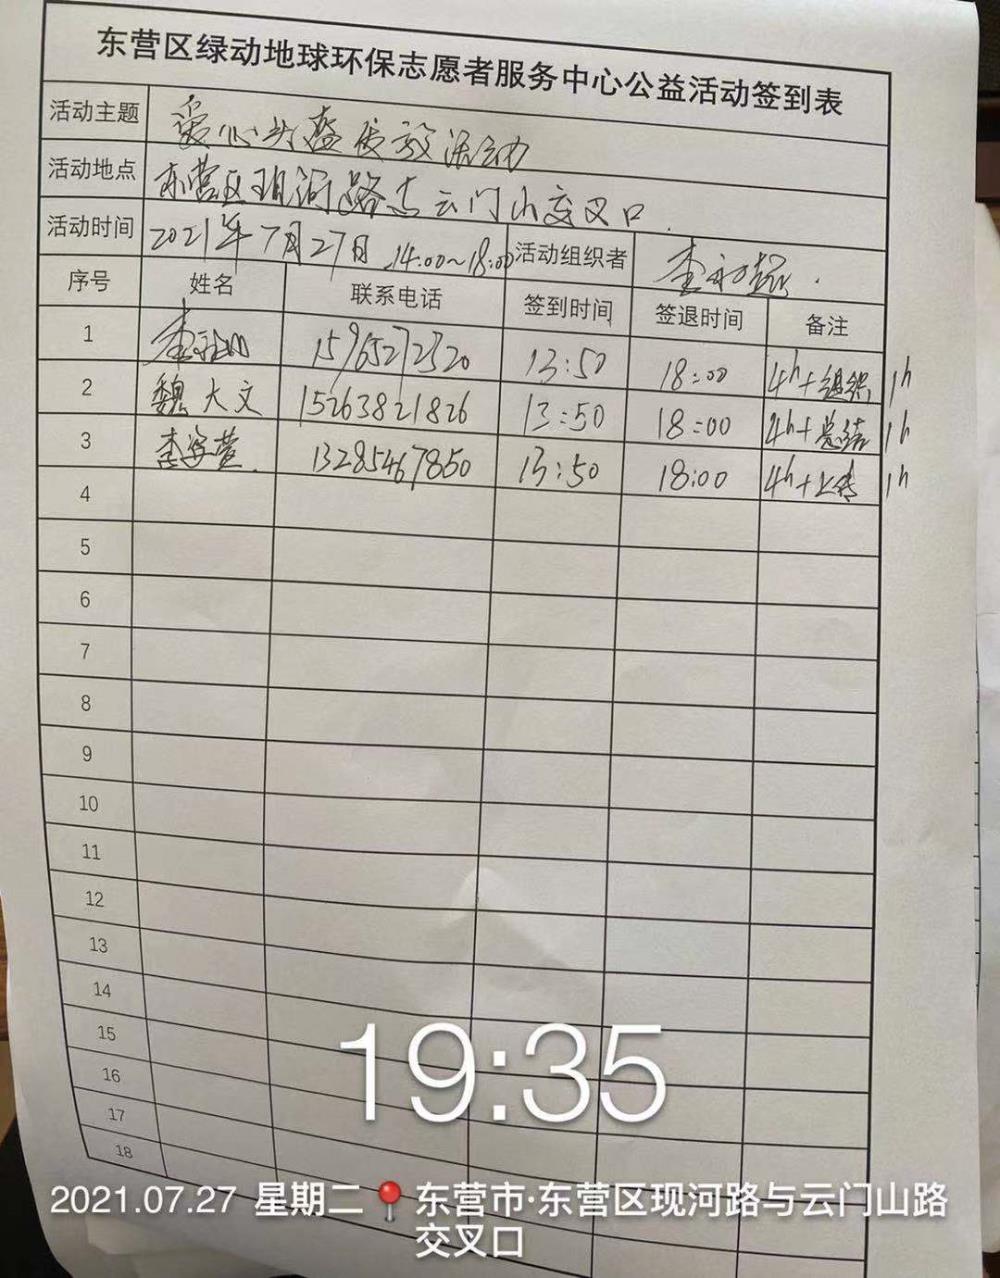 东营区绿动地球环保志愿者服务中心公益活动签到表
活动主题 爱心头盔发放活动
活动地点 东营区现河路与云门山交叉口.
活动时间 2021年7月27日 14:00~18:00 活动组织者 李
序号 姓名 联系电话 签到时间 签退时间 备注
1 李 15965272520 13:50 18:00 4h+组织 1h
2 魏大文 15263821826 13:50 18:00 4h+总结 1h
3 李 13285467850 13:50 18:00 4h+上传 1h
4
5
6
7
8
9
10
11
12
13
14
15
16
17
18
19:35
2021.07.27 星期二 东营市·东营区现河路与云门山路
交叉口